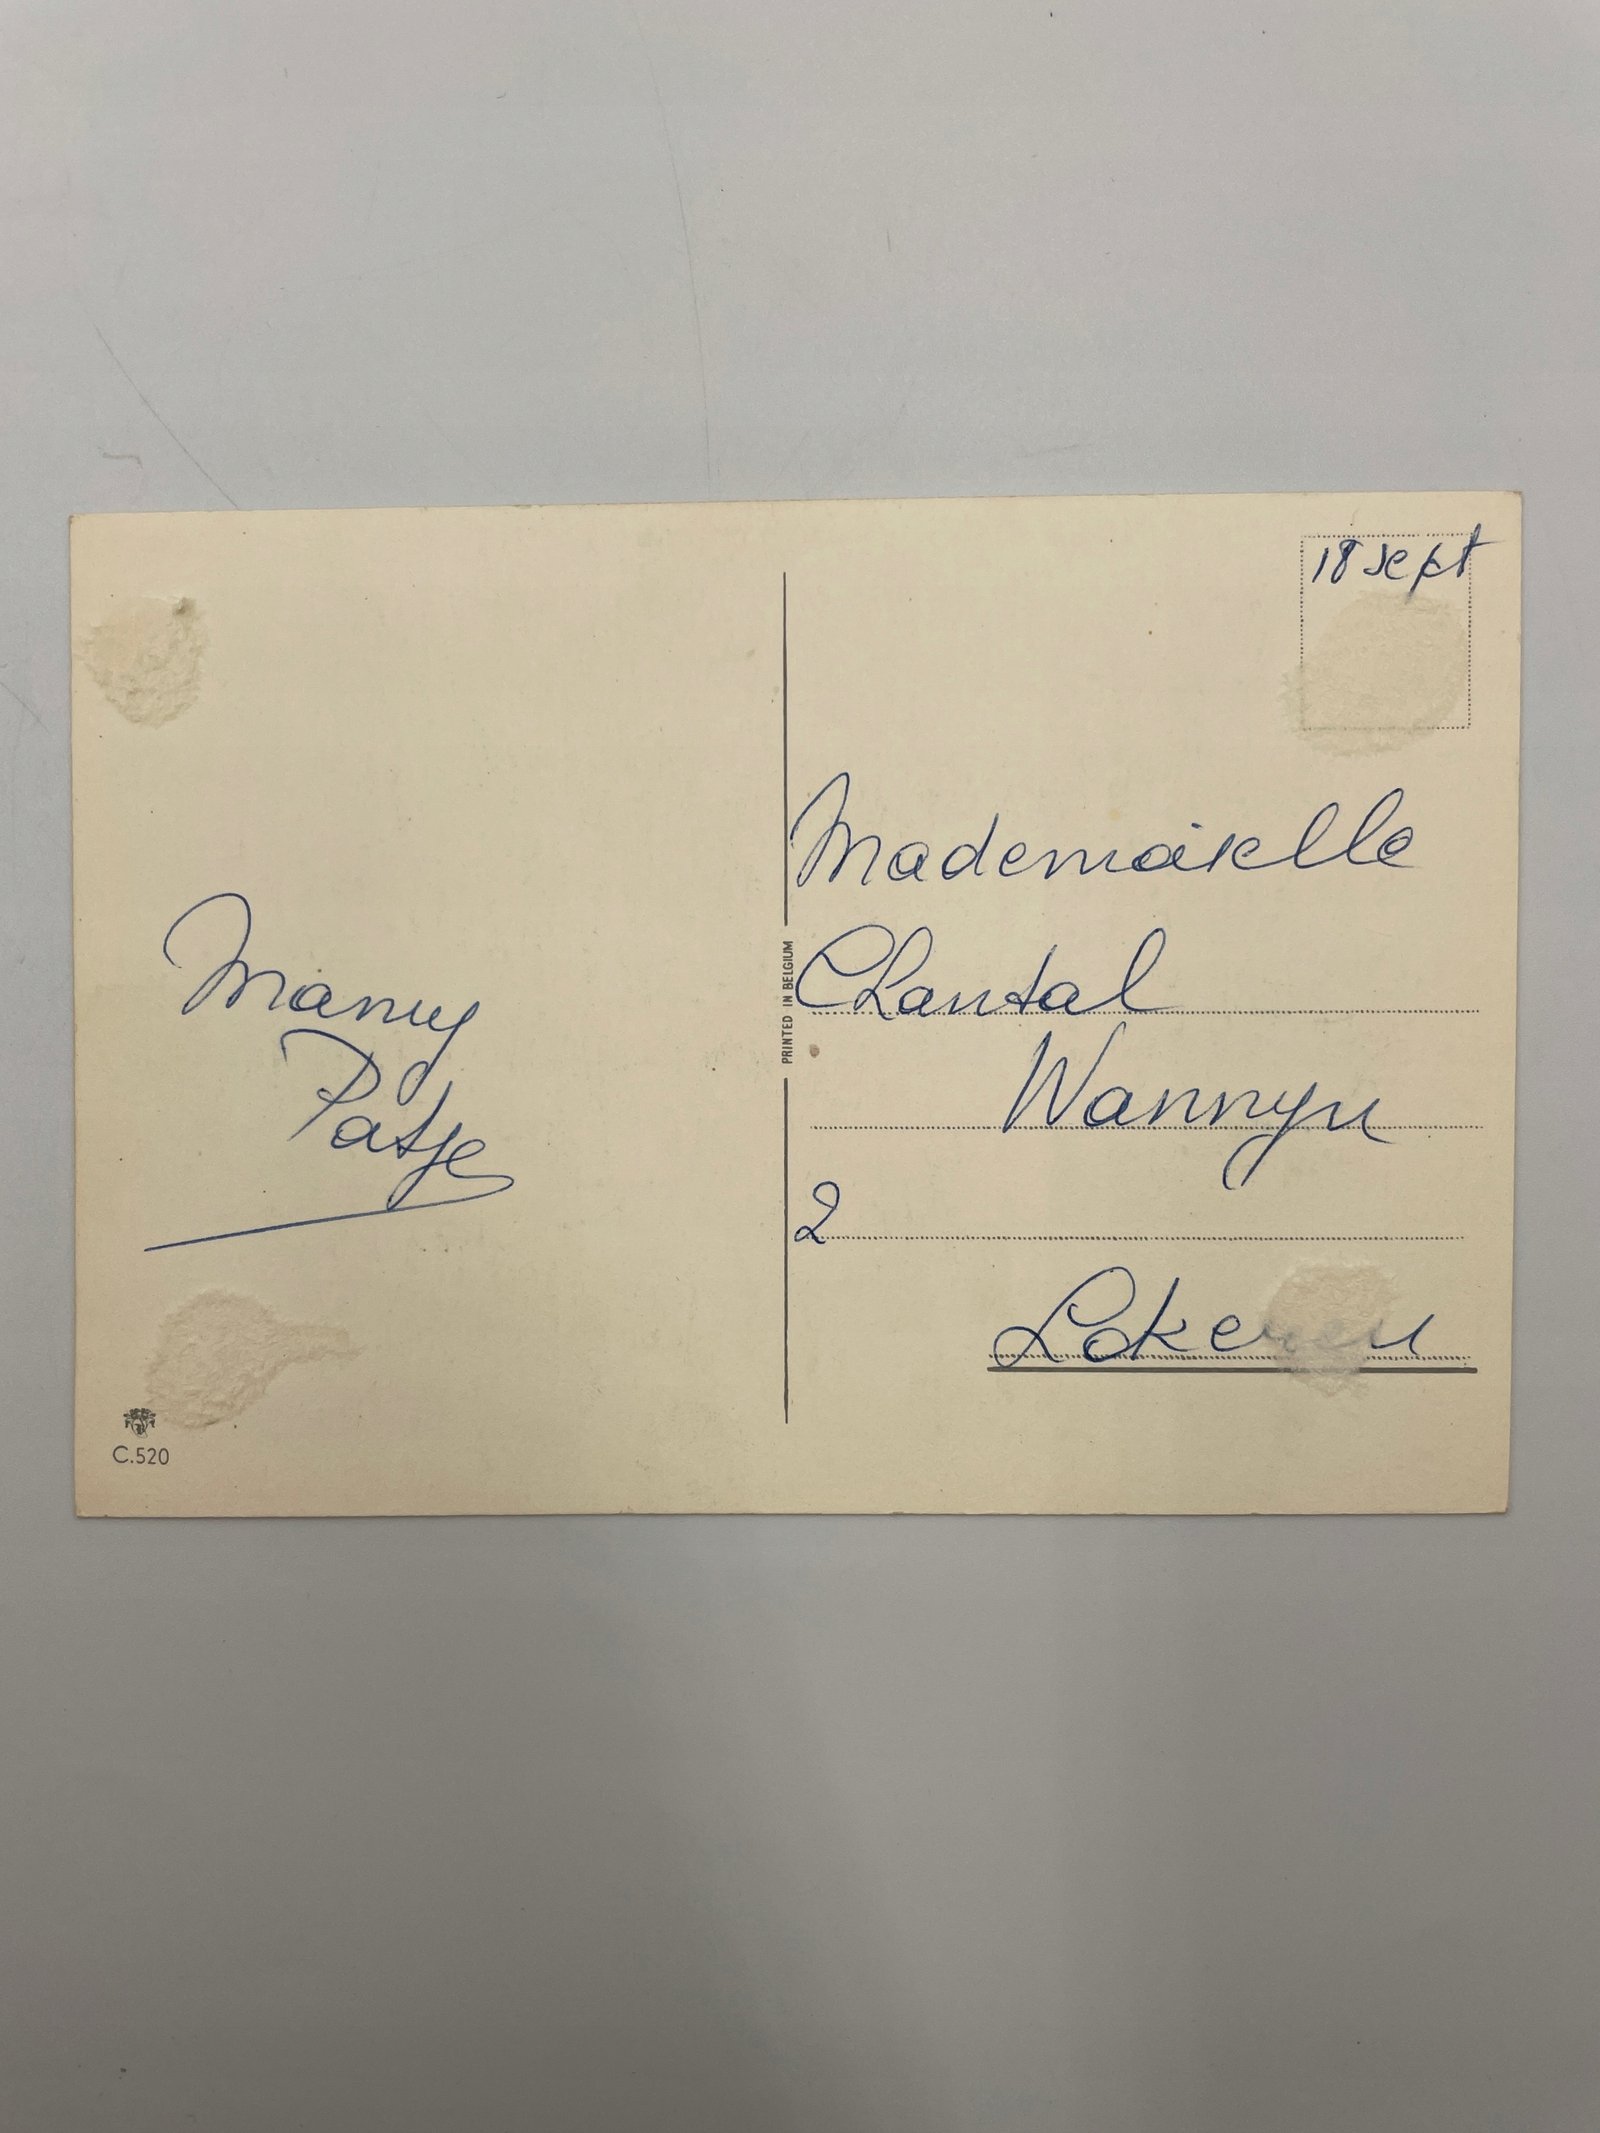 18 sept
Mademoiselle
Chantal
Wannyn
2
Lokeren
Mamy
Patje
PRINTED IN BELGIUM
C.520